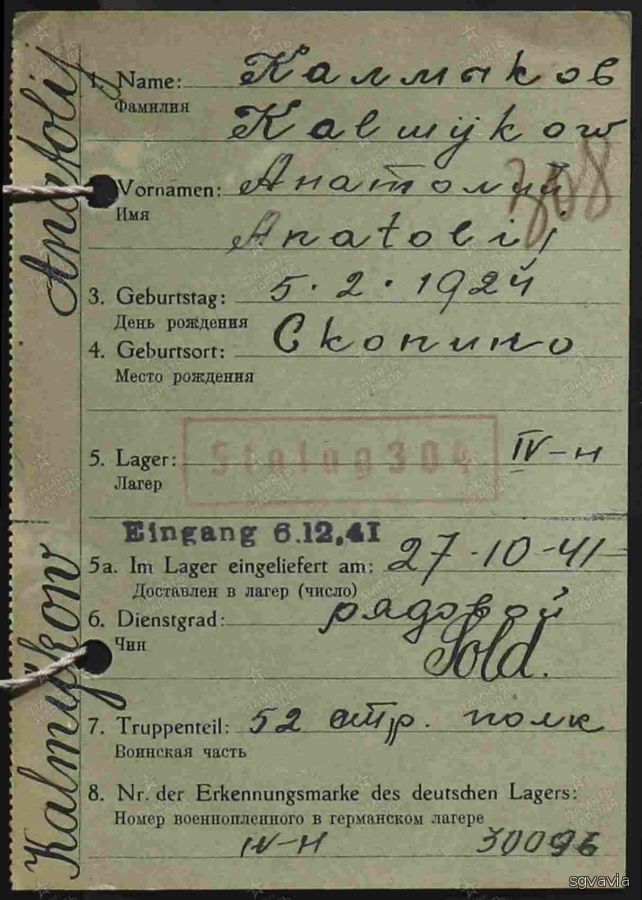 Anatolij
Kalmijkow
1. Name: Калмыков
Фамилия
Kalmükow
Vornamen: Анатолий
Имя
Anatolij
308
3. Geburtstag: 5.2.1924
День рождения
4. Geburtsort: Скопино
Место рождения
5. Lager: Stalag 304 IV-H
Лагер
Eingang 6.12.41
5a. Im Lager eingeliefert am: 27-10-41
Доставлен в лагер (число)
6. Dienstgrad: рядовой
Чин
Sold.
7. Truppenteil: 52 стр. полк
Воинская часть
8. Nr. der Erkennungsmarke des deutschen Lagers:
Номер военнопленного в германском лагере
IV-H 30096
sgvavia